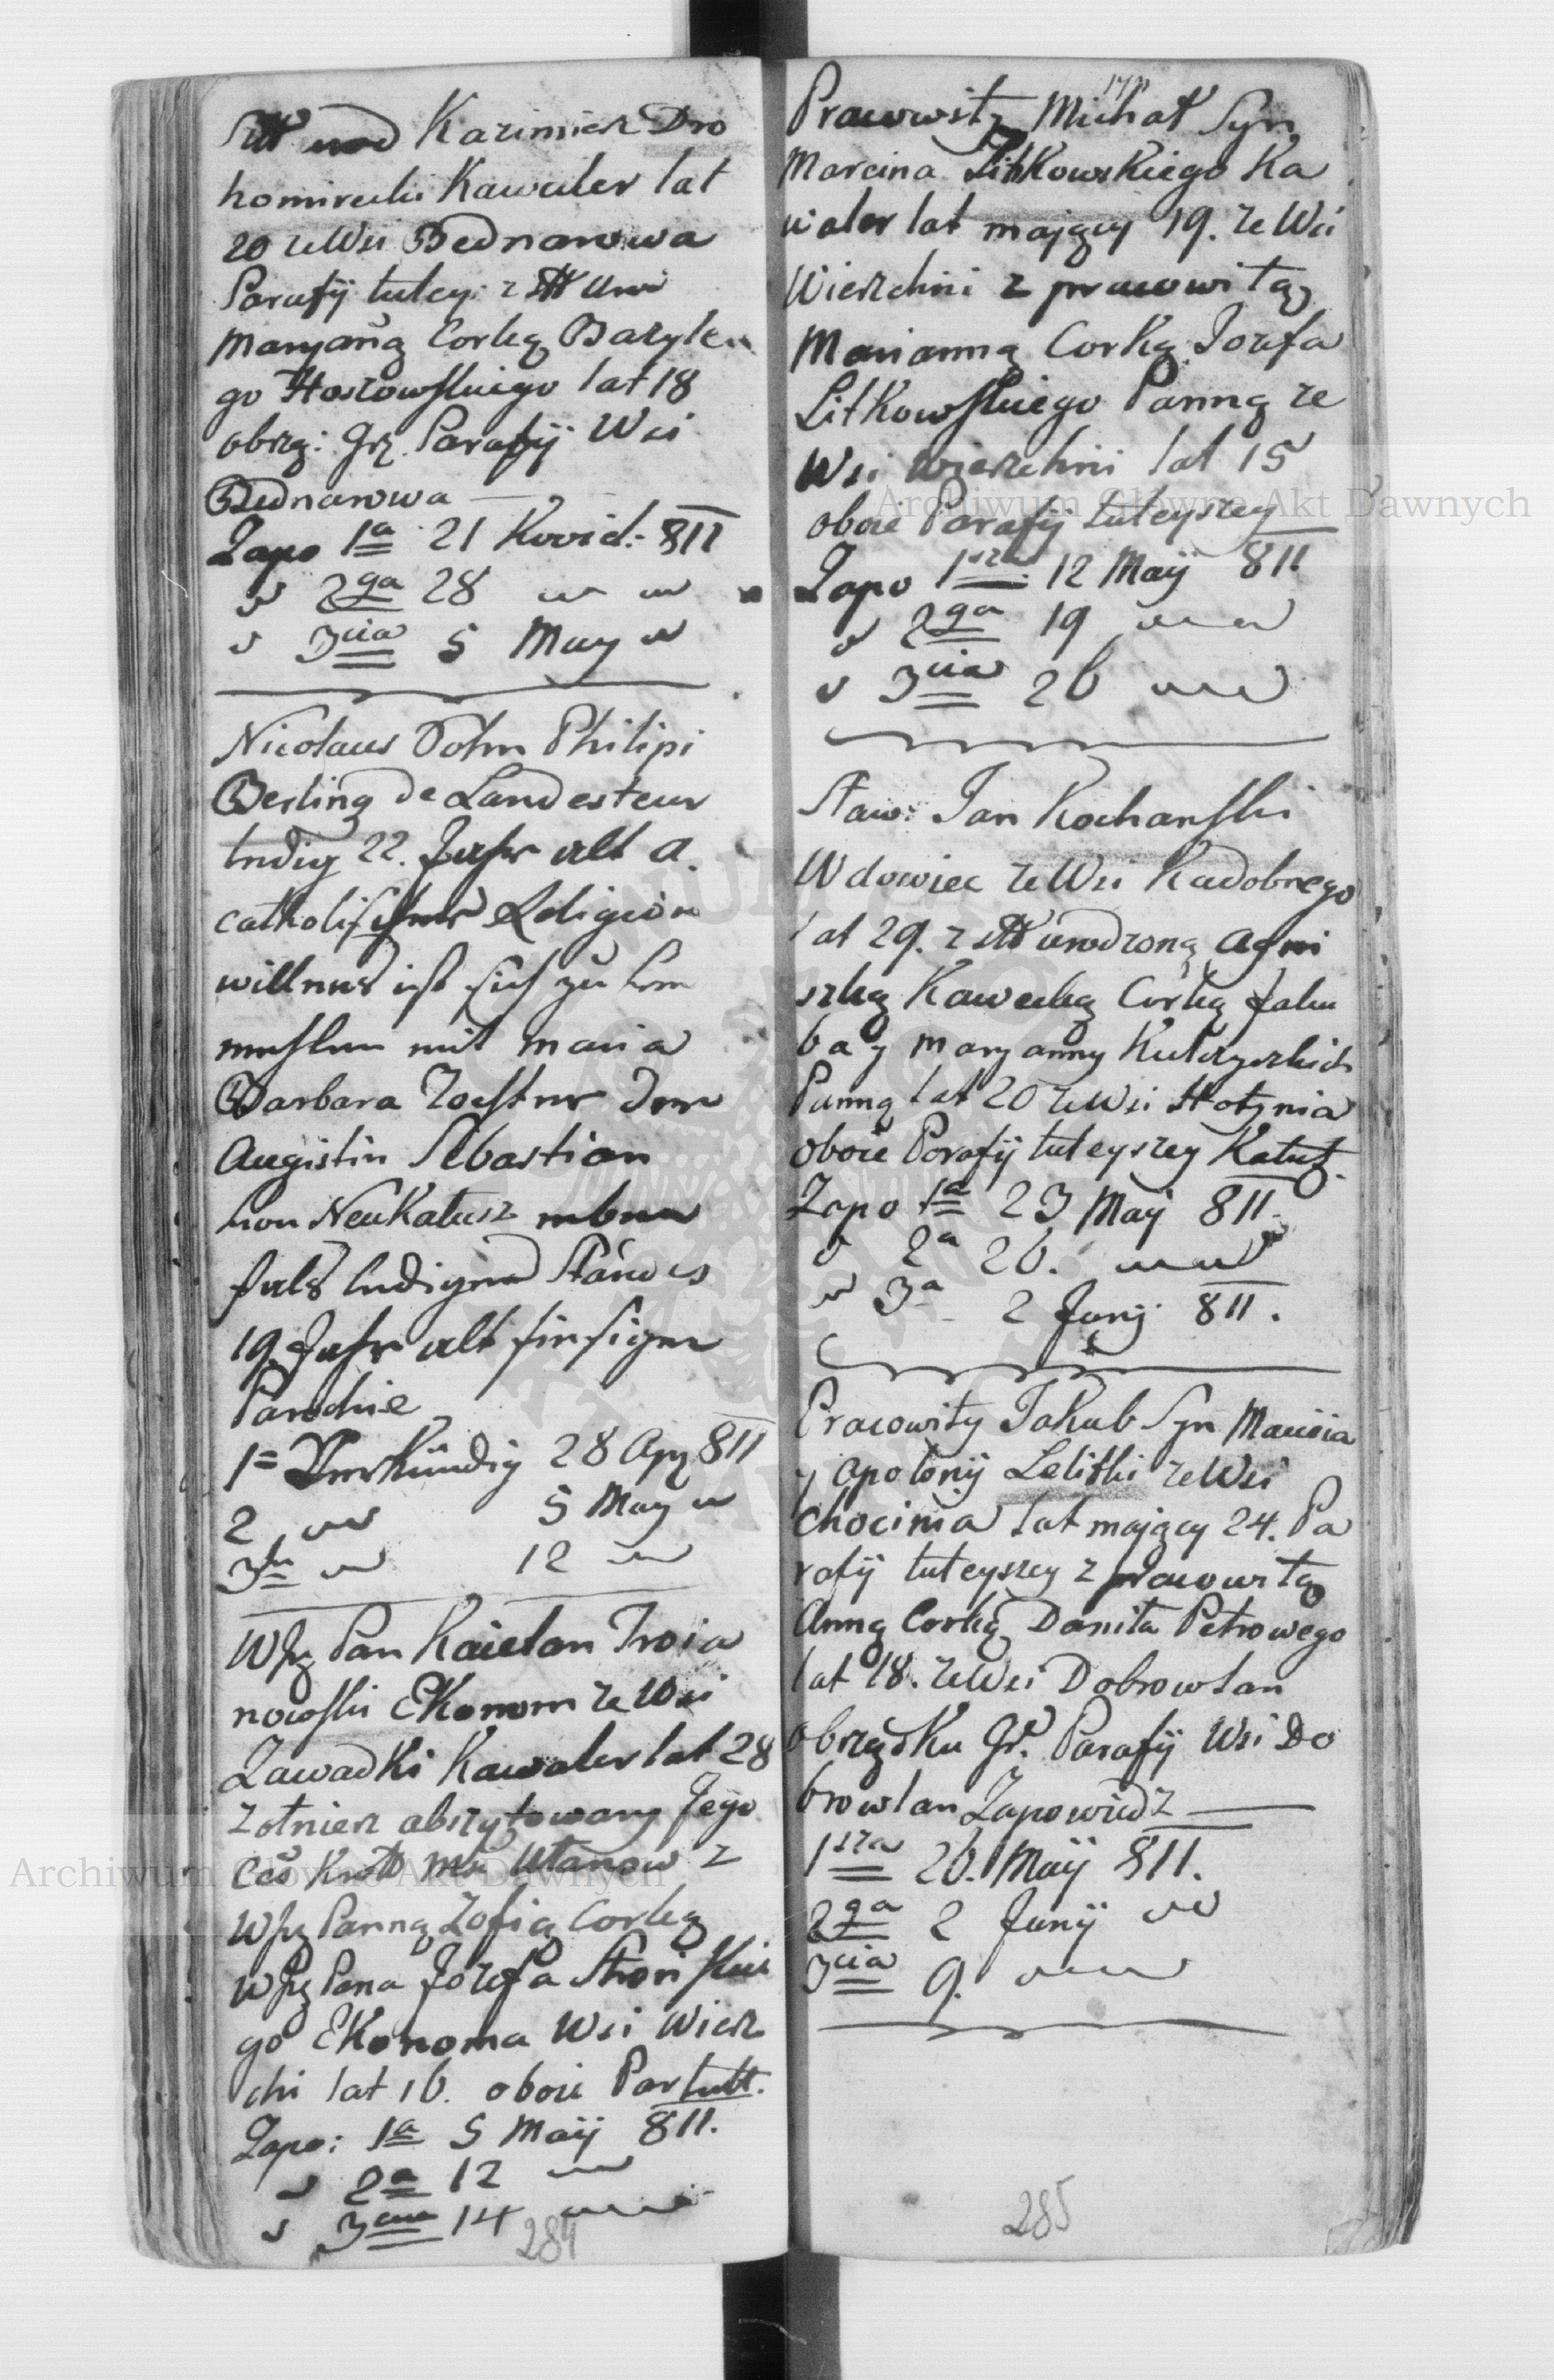 Kazimierz Dro
homirecki Kawaler lat
20 ze Wsi Bednarowa
Parafij tutey: z
Maryaną Corką Bazyle
go Hoszowskiego lat 18
obrzą: Grz Parafij Wsi
Bednarowa
Zapo 1a 21 Kwiet: 811
" 2ga 28 " "
" 3cia 5 May "
Nicolaus Sohn Philipi
Berling de Landestreu
ledig 22. Jahr alt a.
catholischer Religion
willens ist sich zu
mit Maria
Barbara Tochter dem
Augistin Sebastian
von NeuKalusz eben
fals ledigen Standes
19 Jahr alt hiesigen
Parochie
1= Verkündig 28 Apr 811
2 " 5 May "
3te " 12 "
WJP Pan Kaietan Troia
nowski EKonom ze Wsi
Zawadki Kawaler lat 28
Zołnierz abszytowany Jego
Ces Ułanow z
WJP Panną Zofią Corką
WJP Pana Jozefa Stroiskie
go EKonoma Wsi Wierz
chni lat 16. oboie Par tutt.
Zapo: 1a 5 Maij 811.
" 2a 12 "
" 3cia 14 "
284
Pracowity Michał Syn
Marcina LitKowsKiego Ka
waler lat maiący 19. ze Wsi
Wierzchni z pracowitą
Marianną CorKą Jozefa
LitKowskiego Panną ze
Wsi Wierzchni lat 15
oboie Parafij tuteyszey
Zapo 1sza 12 Maij 811
" 2ga 19 "
" 3cia 26 "
Sław: Jan Kochanski
Wdowiec ze Wsi Kadobnego
lat 29. z urodzoną Agni
szką Kawecką Corką Jaku
ba y Maryanny
Panną lat 20 ze Wsi Hołynia
oboie Parafij tuteyszey Kałuż.
Zapo 1a 23 Maij 811.
" 2a 26. "
" 3a 2 Junij 811.
Pracowity JaKub Syn Macieia
y Apolonij Lelitki ze Wsi
Chocinia lat maiący 24. Pa
rafij tuteyszey z pracowitą
Anną Corką Daniła Petrowego
lat 18. ze Wsi Dobrowlan
obrządKu Gr. Parafij Wsi Do
browlan Zapowiedz
1sza 26. Maij 811.
2ga 2 Junij "
3cia 9. "
285
Archiwum Główne Akt Dawnych
Archiwum Główne Akt Dawnych